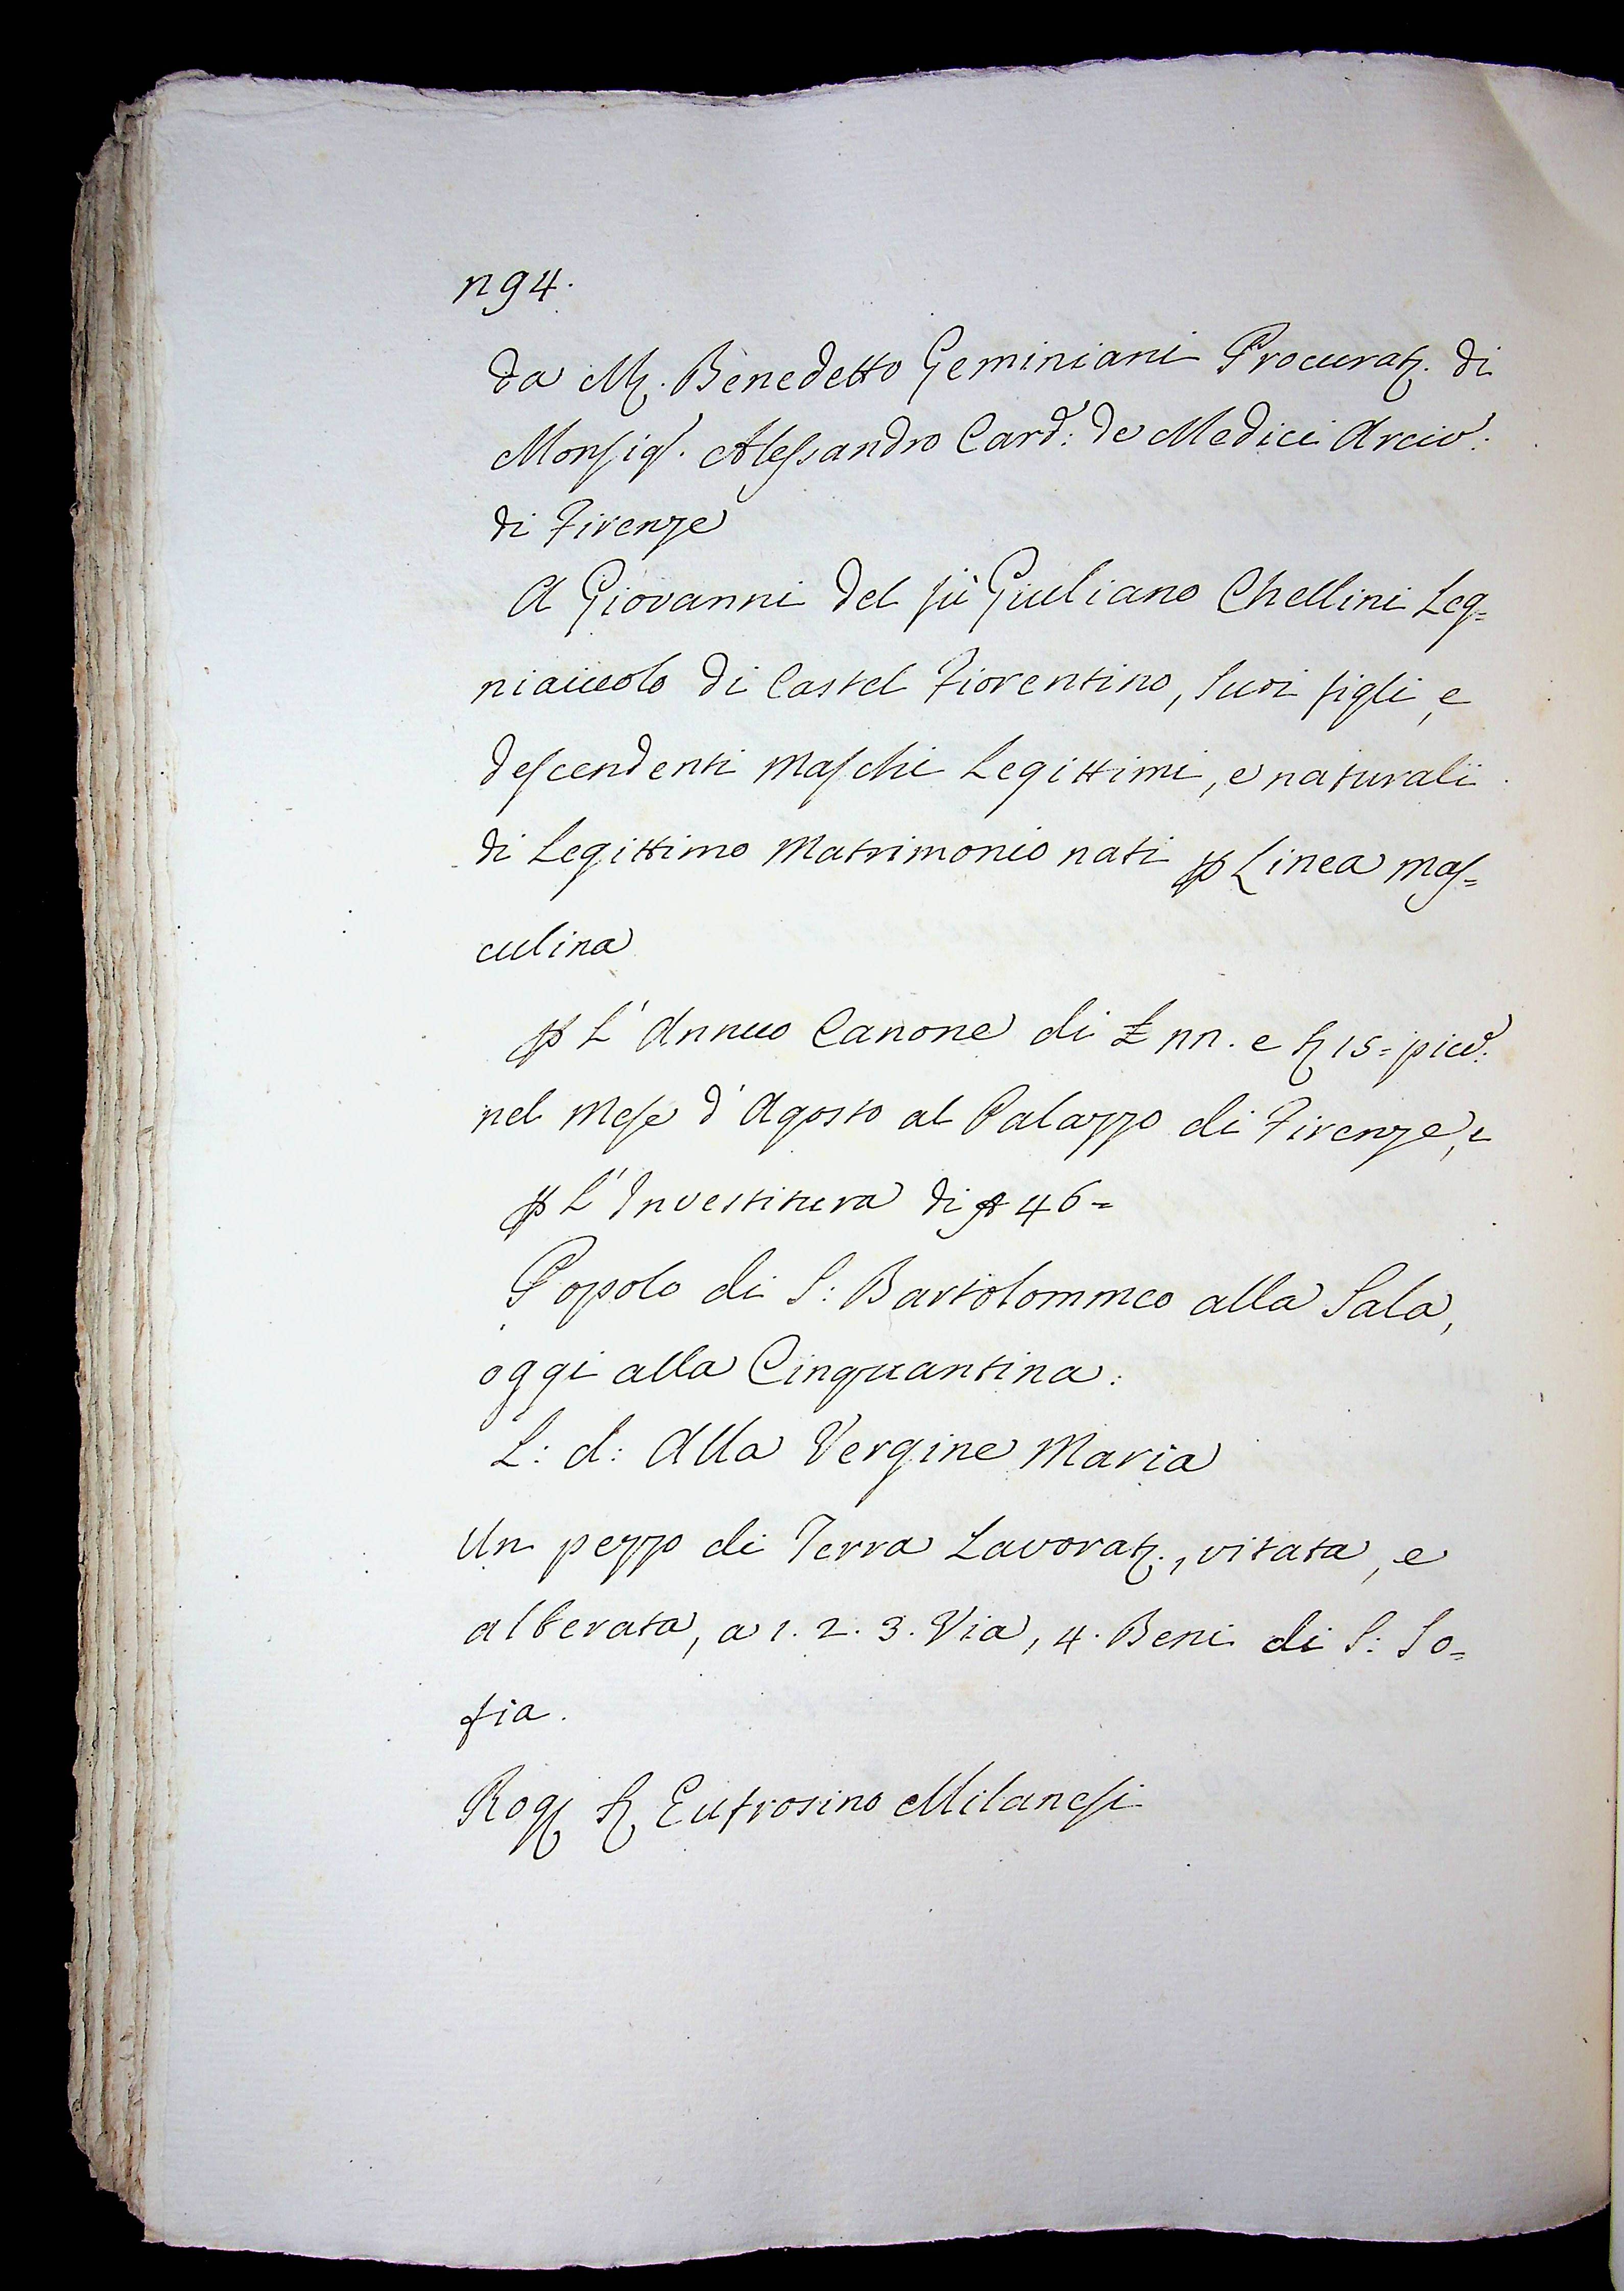 n94.
da M. Benedetto Geminiani Procurat. di
Monsig. Alessandro Card: de Medici Arciv:
di Firenze
A Giovanni del fù Giuliano Chellini Leg=
niaiuolo di Castel Fiorentino, suoi figli, e
descendenti maschi Legittimi, e naturali
di Legittimo Matrimonio nati p Linea mas=
culina
p L'Annuo Canone di £ nn. e ß 15= picc:
nel mese d'Agosto al Palazzo di Firenze, e
p L'Investitura di 46=
Popolo di S: Bartolommeo alla Sala,
oggi alla Cinquantina:
L: d: Alla Vergine Maria
Un pezzo di Terra Lavorat., vitata, e
alberata, a 1. 2. 3. Via, 4. Beni di S: So=
fia.
Rog S Eufrosino Milanesi